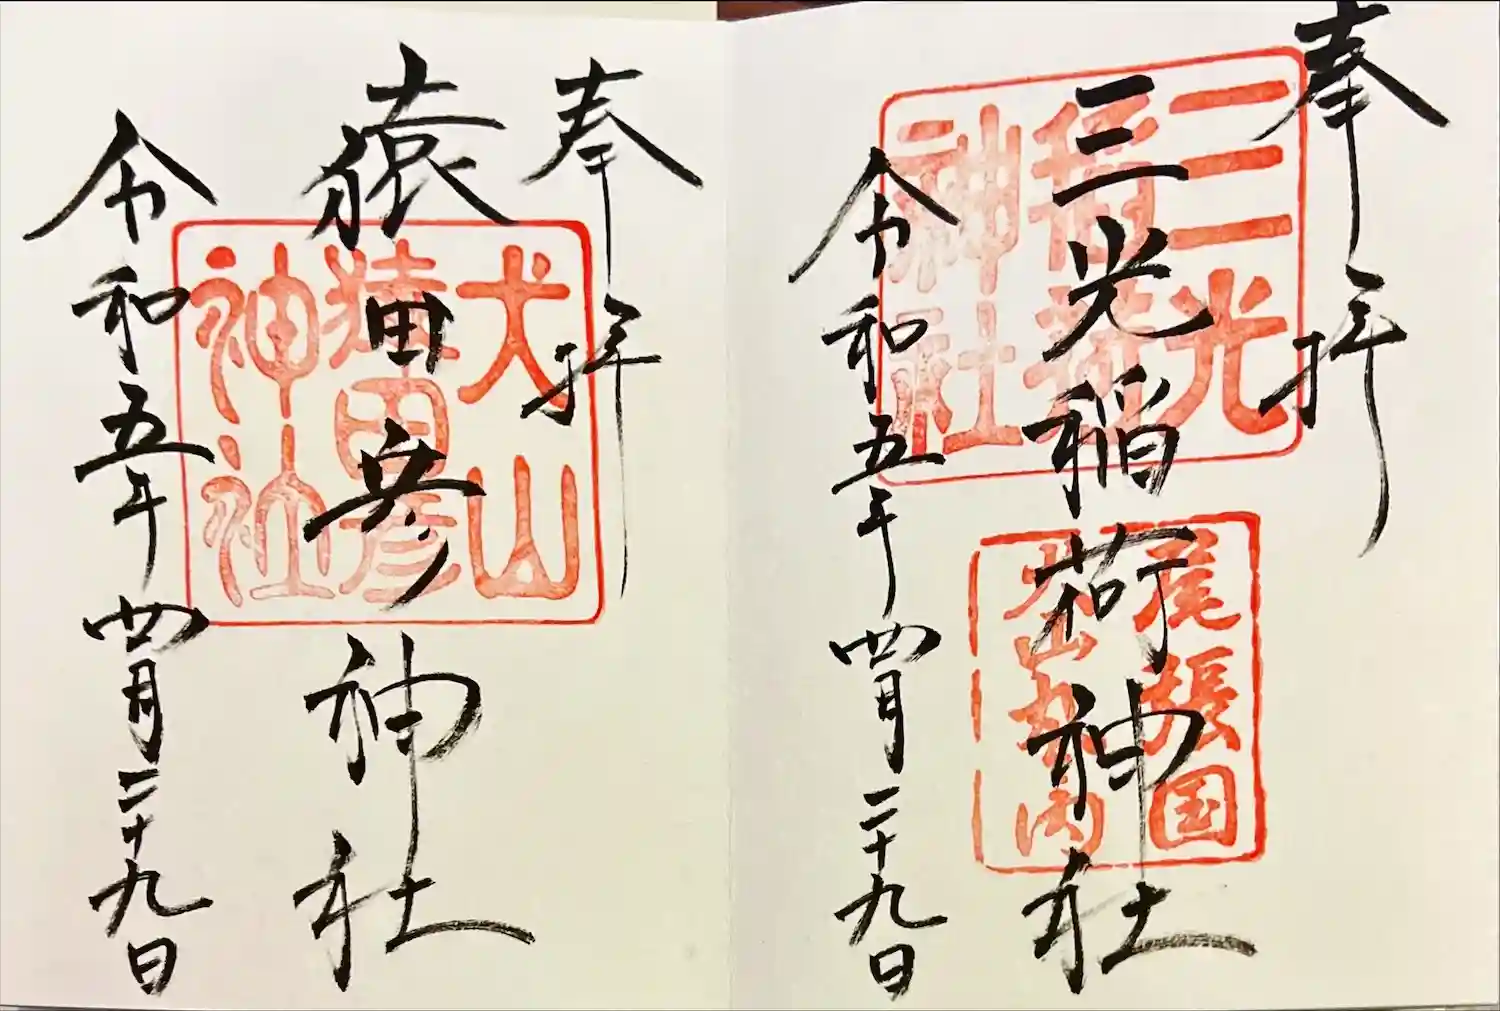 奉拝
三光稲荷神社
令和五年四月二十九日
三光
稲荷
神社
尾張国
犬山丸内
奉拝
猿田彦神社
令和五年四月二十九日
犬山
猿田彦
神社